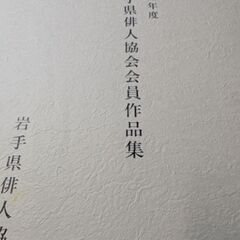 年度
手県俳人協会会員作品集
岩手県俳人協